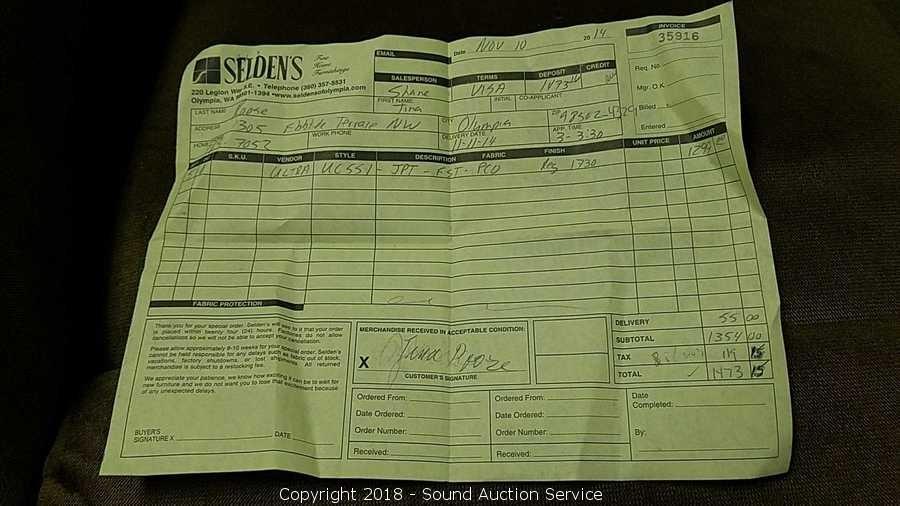 SELDEN'S Fine Home Furnishings
220 Legion Way S.E. • Telephone (360) 357-5531
Olympia, WA 98501-1394 • www.seldensofolympia.com
EMAIL
Date Nov 10 20 14
INVOICE
35916
SALESPERSON TERMS DEPOSIT CREDIT
Shane VISA 1473
Req. No.
Mgr. O.K.
Billed
Entered
LAST NAME FIRST NAME INITIAL CO-APPLICANT
Tina
ADDRESS 305 Terrace NW CITY Olympia ZIP 98502-4329
HOME 7052 WORK PHONE DELIVERY DATE 11-11-14 APP. TIME 3-3:30
S.K.U. VENDOR STYLE DESCRIPTION FABRIC FINISH UNIT PRICE AMOUNT
ULTRA UC551 - JPT - FST - PCO Reg 1730 1299 00
FABRIC PROTECTION
Thank you for your special order. Selden's will see to it that your order
is placed within twenty four (24) hours. Factories do not allow
cancellations so we will not be able to accept your cancellation.
Please allow approximately 8-10 weeks for your special order. Selden's
cannot be held responsible for any delays such as fabric out of stock,
vacations, factory shutdowns, or lost shipments. All returned
merchandise is subject to a restocking fee.
We appreciate your patience, we know how exciting it can be to wait for
new furniture and we do not want you to lose that excitement because
of any unexpected delays.
BUYER'S
SIGNATURE X DATE
MERCHANDISE RECEIVED IN ACCEPTABLE CONDITION:
X
CUSTOMER'S SIGNATURE
DELIVERY 55 00
SUBTOTAL 1354 00
TAX 119 15
TOTAL 1473 15
Ordered From:
Date Ordered:
Order Number:
Received:
Ordered From:
Date Ordered:
Order Number:
Received:
Date
Completed:
By:
Copyright 2018 - Sound Auction Service